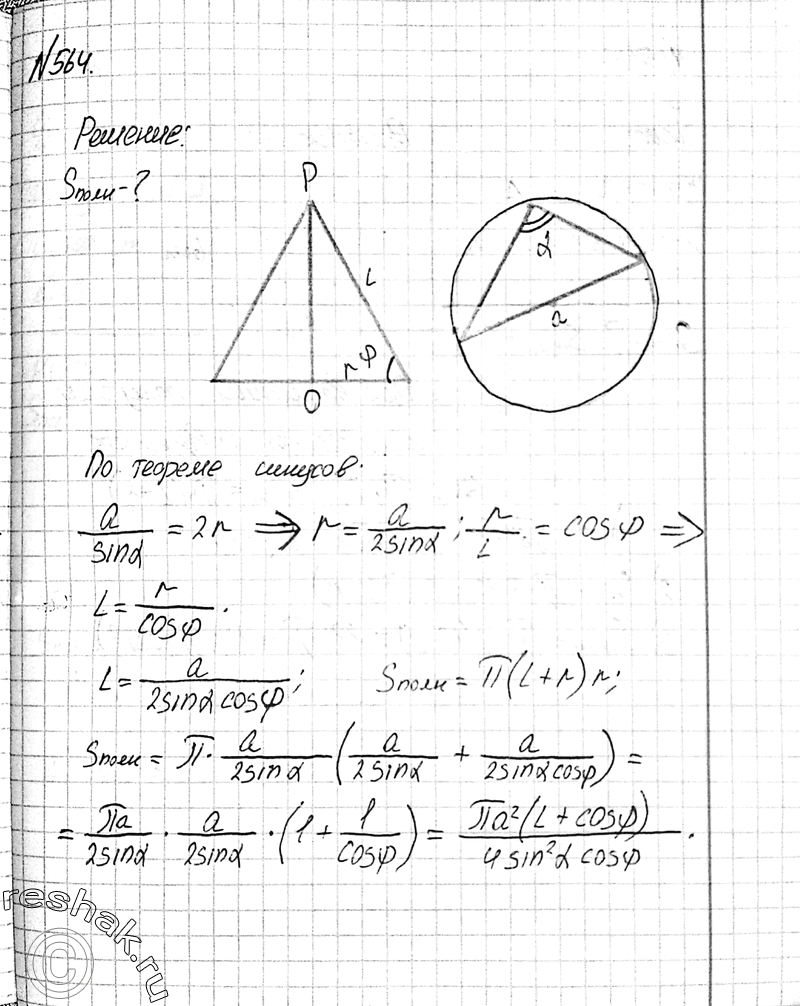 №564.
Решение:
Sполн-?
P
L
φ
r
O
α
a
По теореме синусов.
a/sinα = 2r ⇒ r = a/2sinα; r/L = cosφ ⇒
L = r/cosφ.
L = a/2sinα cosφ; Sполн = π(L+r)r;
Sполн = π · a/2sinα (a/2sinα + a/2sinα cosφ) =
= πa/2sinα · a/2sinα · (1 + 1/cosφ) = πa²(L + cosφ)/4sin²α cosφ.
reshak.ru
©